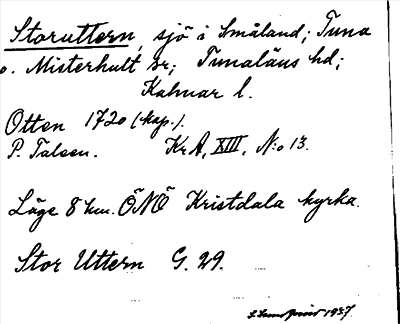 Storuttern, sjö i Småland; Tuna
o. Misterhult sr; Tunaläns hd;
Kalmar l.
Otten 1720 (kap.).
P. Talsen. KrA, XIII, N:o 13.
Läge 8 km. ÖNÖ Kristdala kyrka.
Stor Uttern G. 29.
1937.